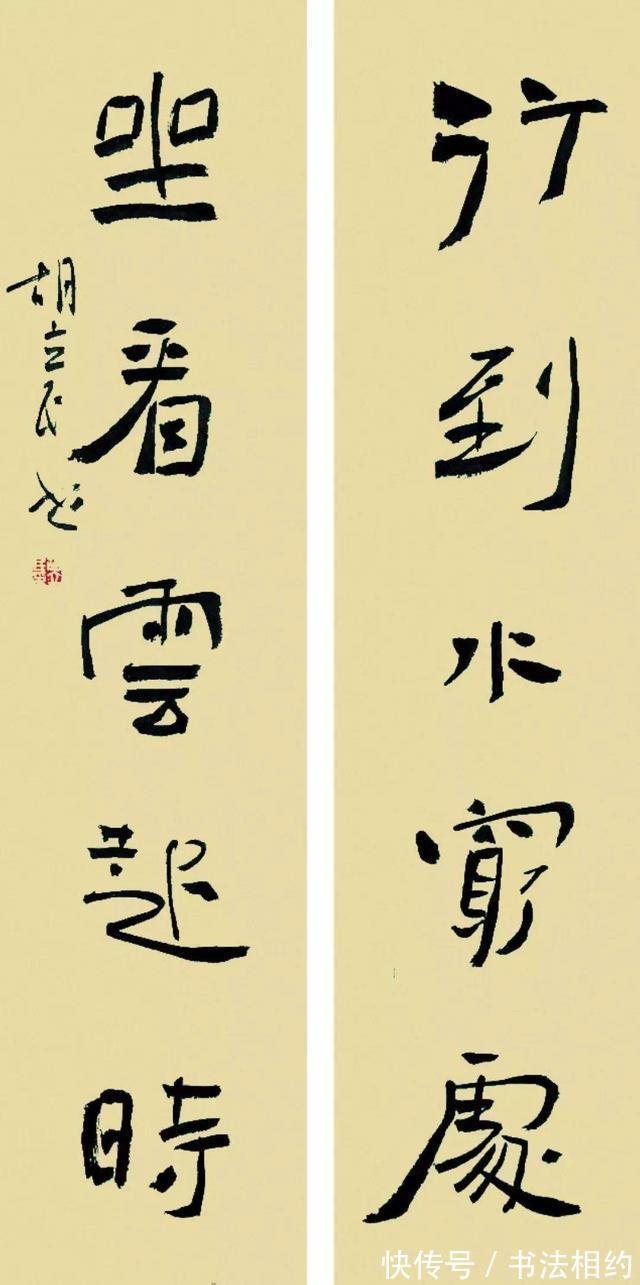 行到水窮處
坐看雲起時
胡立民书
快传号／书法相约